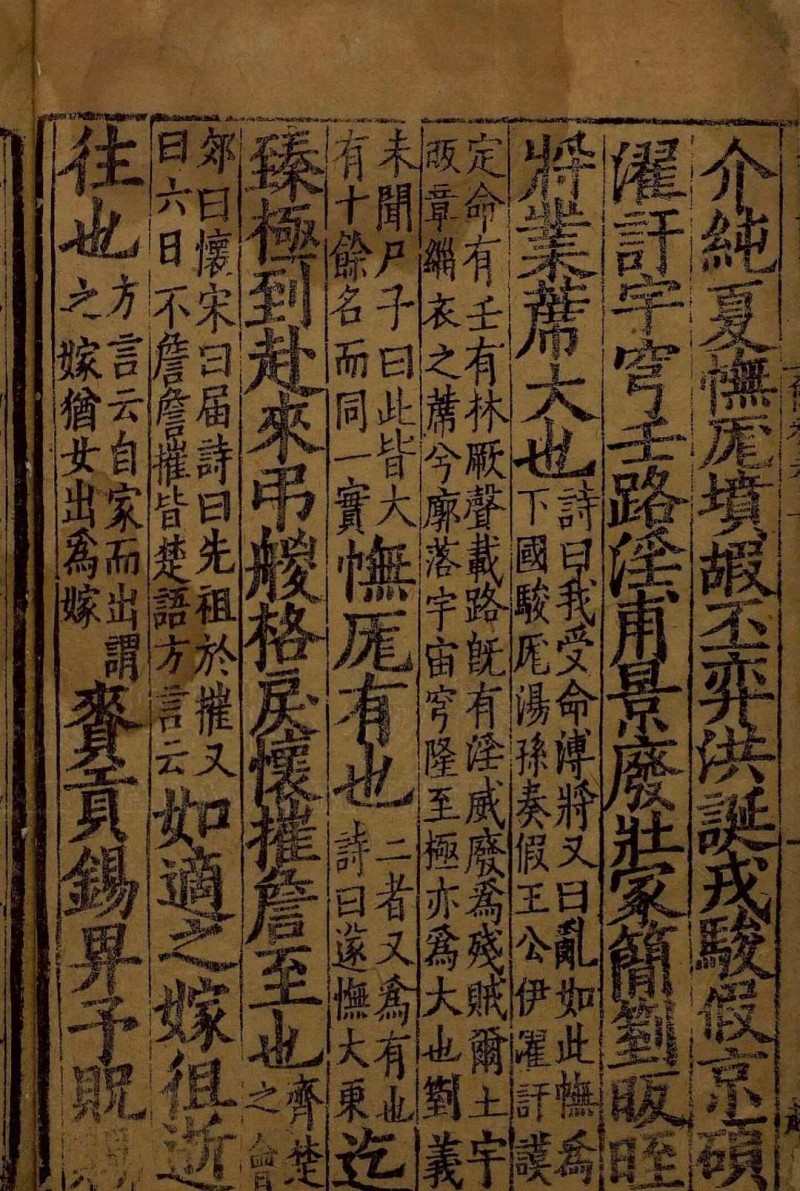 介純夏憮厖墳嘏丕弈洪誕戎駿假京碩
濯訏宇穹壬路淫甫景廢壯冢簡箌昄晊
將業蓆大也
詩曰我受命溥將又曰亂如此憮爲
下國駿厖湯孫奏假王公伊濯訏謨
定命有壬有林厥聲載路旣有淫威廢爲殘賊爾土宇
昄章緇衣之蓆兮廓落宇宙穹隆至極亦爲大也箌義
未聞尸子曰此皆大
有十餘名而同一實
憮厖有也
二者又爲有也
詩曰遂憮大東
迄
臻極到赴來弔艐格戾懷摧詹至也
齊楚
之會
郊曰懷宋曰届詩曰先祖於摧又
曰六日不詹詹摧皆楚語方言云
如適之嫁徂逝
往也
方言云自家而出謂
之嫁猶女出爲嫁
賚貢錫畀予貺